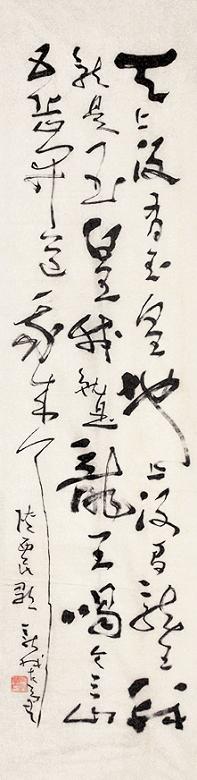 天上没有玉皇地上没有龍王我
就是玉皇我就是龍王喝令三山
五岳开道我来了
陕西民歌